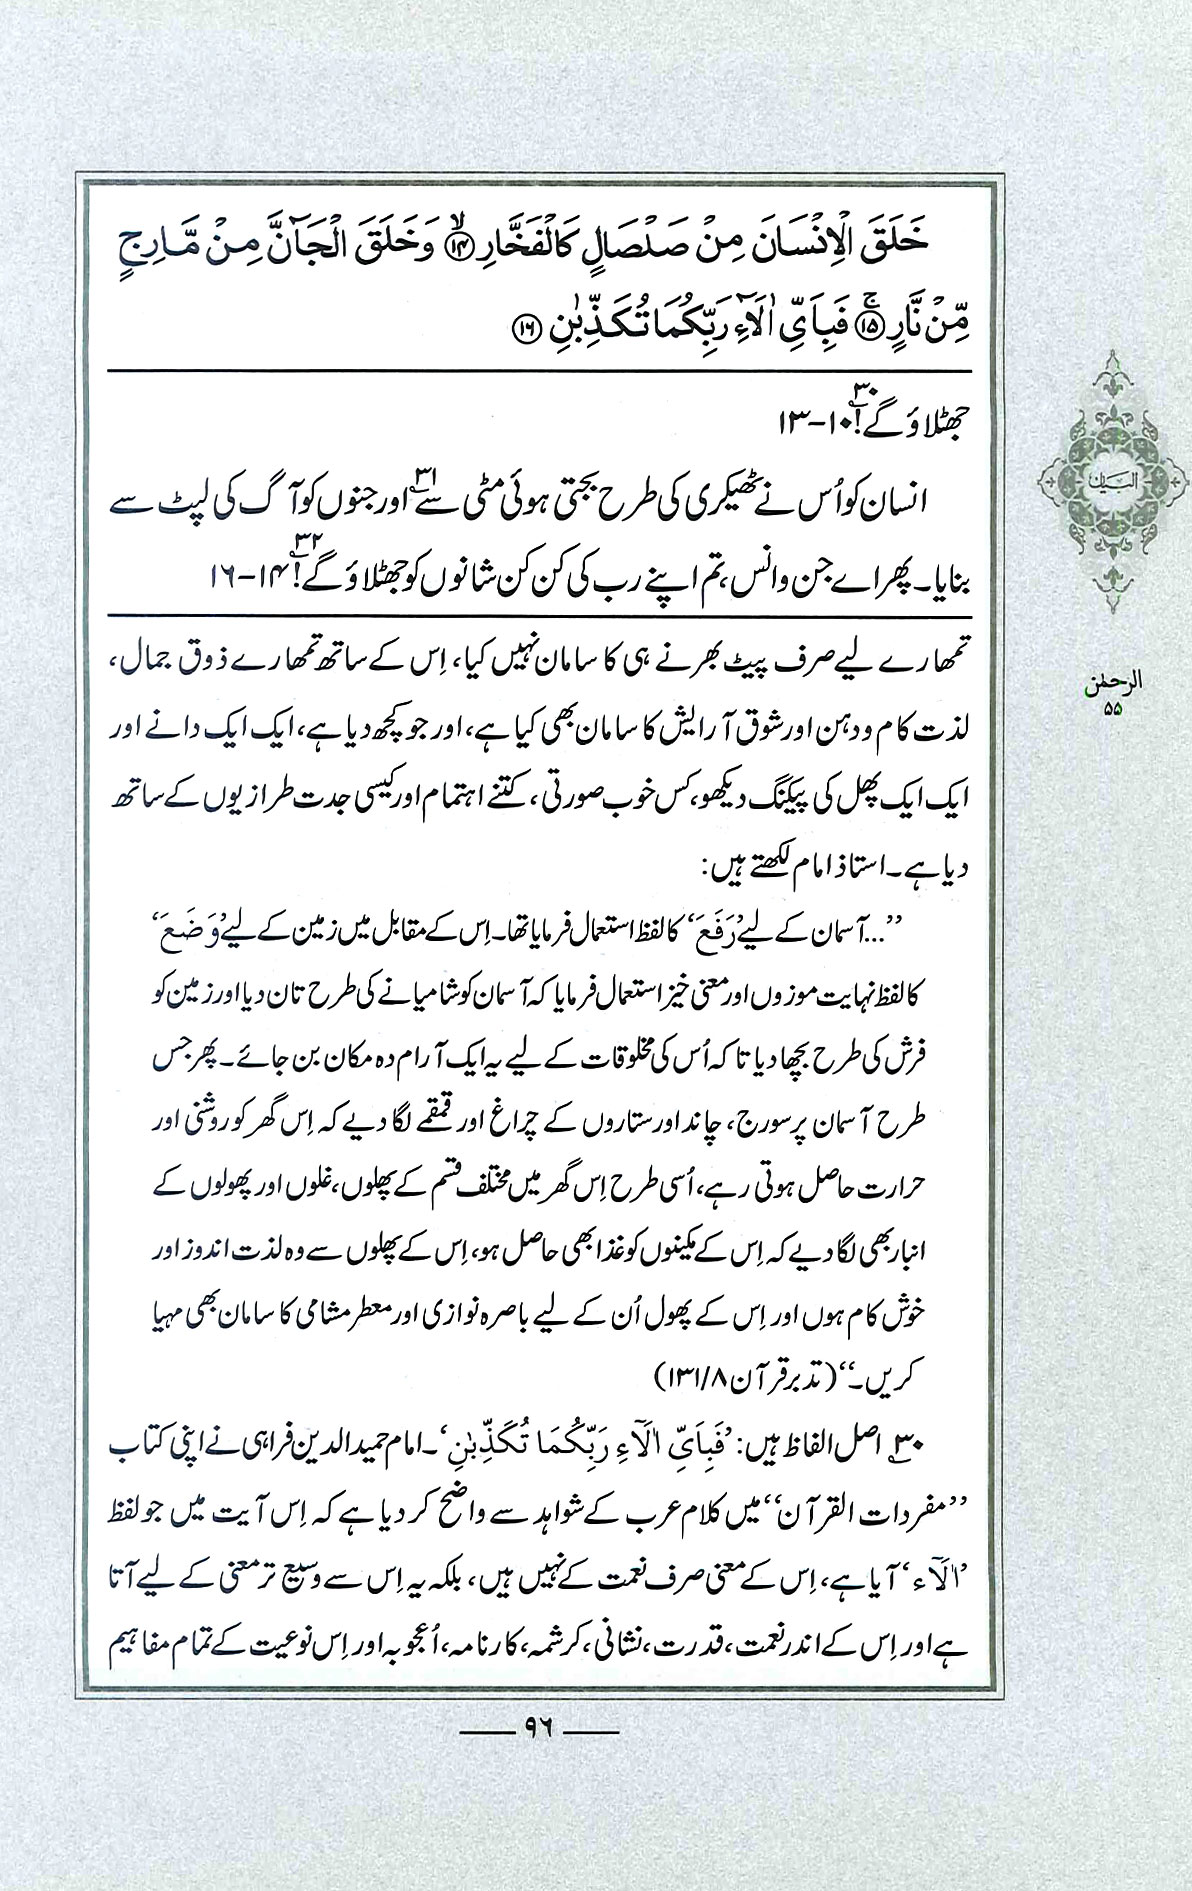 خَلَقَ الْاِنْسَانَ مِنْ صَلْصَالٍ كَالْفَخَّارِ ﴿۱۴﴾ۙ وَخَلَقَ الْجَآنَّ مِنْ مَّارِجٍ
مِّنْ نَّارٍ ﴿۱۵﴾ۚ فَبِاَيِّ اٰلَآءِ رَبِّكُمَا تُكَذِّبٰنِ ﴿۱۶﴾
جھٹلاؤ گے!۳۰ ۱۰-۱۳
انسان کو اُس نے ٹھیکری کی طرح بجتی ہوئی مٹی سے۳۱ اور جنوں کو آگ کی لپٹ سے
بنایا۔ پھر اے جن وانس، تم اپنے رب کی کن کن شانوں کو جھٹلاؤ گے!۳۲ ۱۴-۱۶
تمھارے لیے صرف پیٹ بھرنے ہی کا سامان نہیں کیا، اِس کے ساتھ تمھارے ذوق جمال،
لذت کام ودہن اور شوق آرایش کا سامان بھی کیا ہے، اور جو کچھ دیا ہے، ایک ایک دانے اور
ایک ایک پھل کی پیکنگ دیکھو، کس خوب صورتی، کتنے اہتمام اور کیسی جدت طرازیوں کے ساتھ
دیا ہے۔ استاذ امام لکھتے ہیں:
’’...آسمان کے لیے ’رَفَعَ‘ کا لفظ استعمال فرمایا تھا۔ اِس کے مقابل میں زمین کے لیے ’وَضَعَ‘
کا لفظ نہایت موزوں اور معنی خیز استعمال فرمایا کہ آسمان کو شامیانے کی طرح تان دیا اور زمین کو
فرش کی طرح بچھا دیا تاکہ اُس کی مخلوقات کے لیے یہ ایک آرام دہ مکان بن جائے۔ پھر جس
طرح آسمان پر سورج، چاند اور ستاروں کے چراغ اور قمقمے لگا دیے کہ اِس گھر کو روشنی اور
حرارت حاصل ہوتی رہے، اُسی طرح اِس گھر میں مختلف قسم کے پھلوں، غلوں اور پھولوں کے
انبار بھی لگا دیے کہ اِس کے مکینوں کو غذا بھی حاصل ہو، اِس کے پھلوں سے وہ لذت اندوز اور
خوش کام ہوں اور اِس کے پھول اُن کے لیے باصرہ نوازی اور معطر مشامی کا سامان بھی مہیا
کریں۔‘‘ (تدبر قرآن ۸/۱۳۱)
۳۰ اصل الفاظ ہیں: ’فَبِاَيِّ اٰلَآءِ رَبِّكُمَا تُكَذِّبٰنِ‘۔ امام حمید الدین فراہی نے اپنی کتاب
’’مفردات القرآن‘‘ میں کلام عرب کے شواہد سے واضح کر دیا ہے کہ اِس آیت میں جو لفظ
’اٰلَآء‘ آیا ہے، اِس کے معنی صرف نعمت کے نہیں ہیں، بلکہ یہ اِس سے وسیع تر معنی کے لیے آتا
ہے اور اِس کے اندر نعمت، قدرت، نشانی، کرشمہ، کارنامہ، اُعجوبہ اور اِس نوعیت کے تمام مفاہیم
البیان
الرحمٰن
۵۵
۹۶